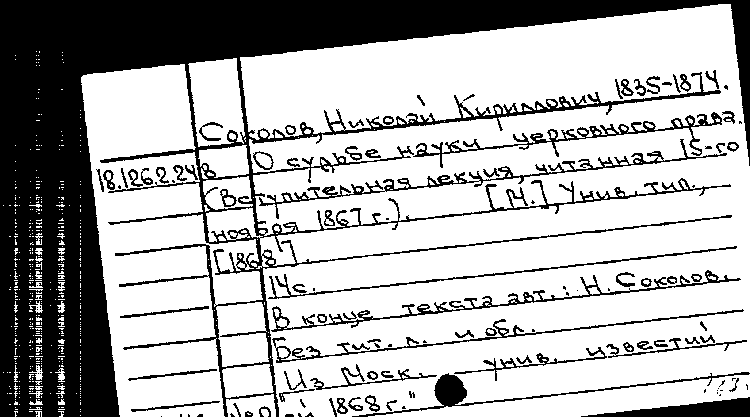 Соколов, Николай Кириллович, 1835-1874.
18.126.2.248 О судьбе науки церковного права.
(Вступительная лекция, читанная 15-го
ноября 1867 г.). [М.], Унив. тип.,
[1868].
14с.
В конце текста авт.: Н. Соколов.
Без тит. л. и обл.
"Из Моск. унив. известий,
1868 г."